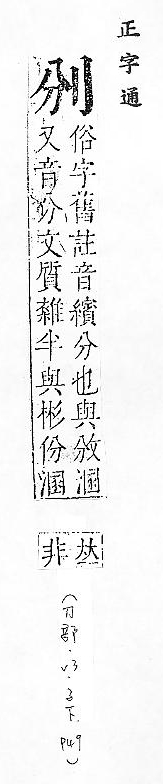 正字通
俗字舊註音繽分也與攽溷
又音份文質雜半與彬份溷
非
(刀部.v3.子下.P49)